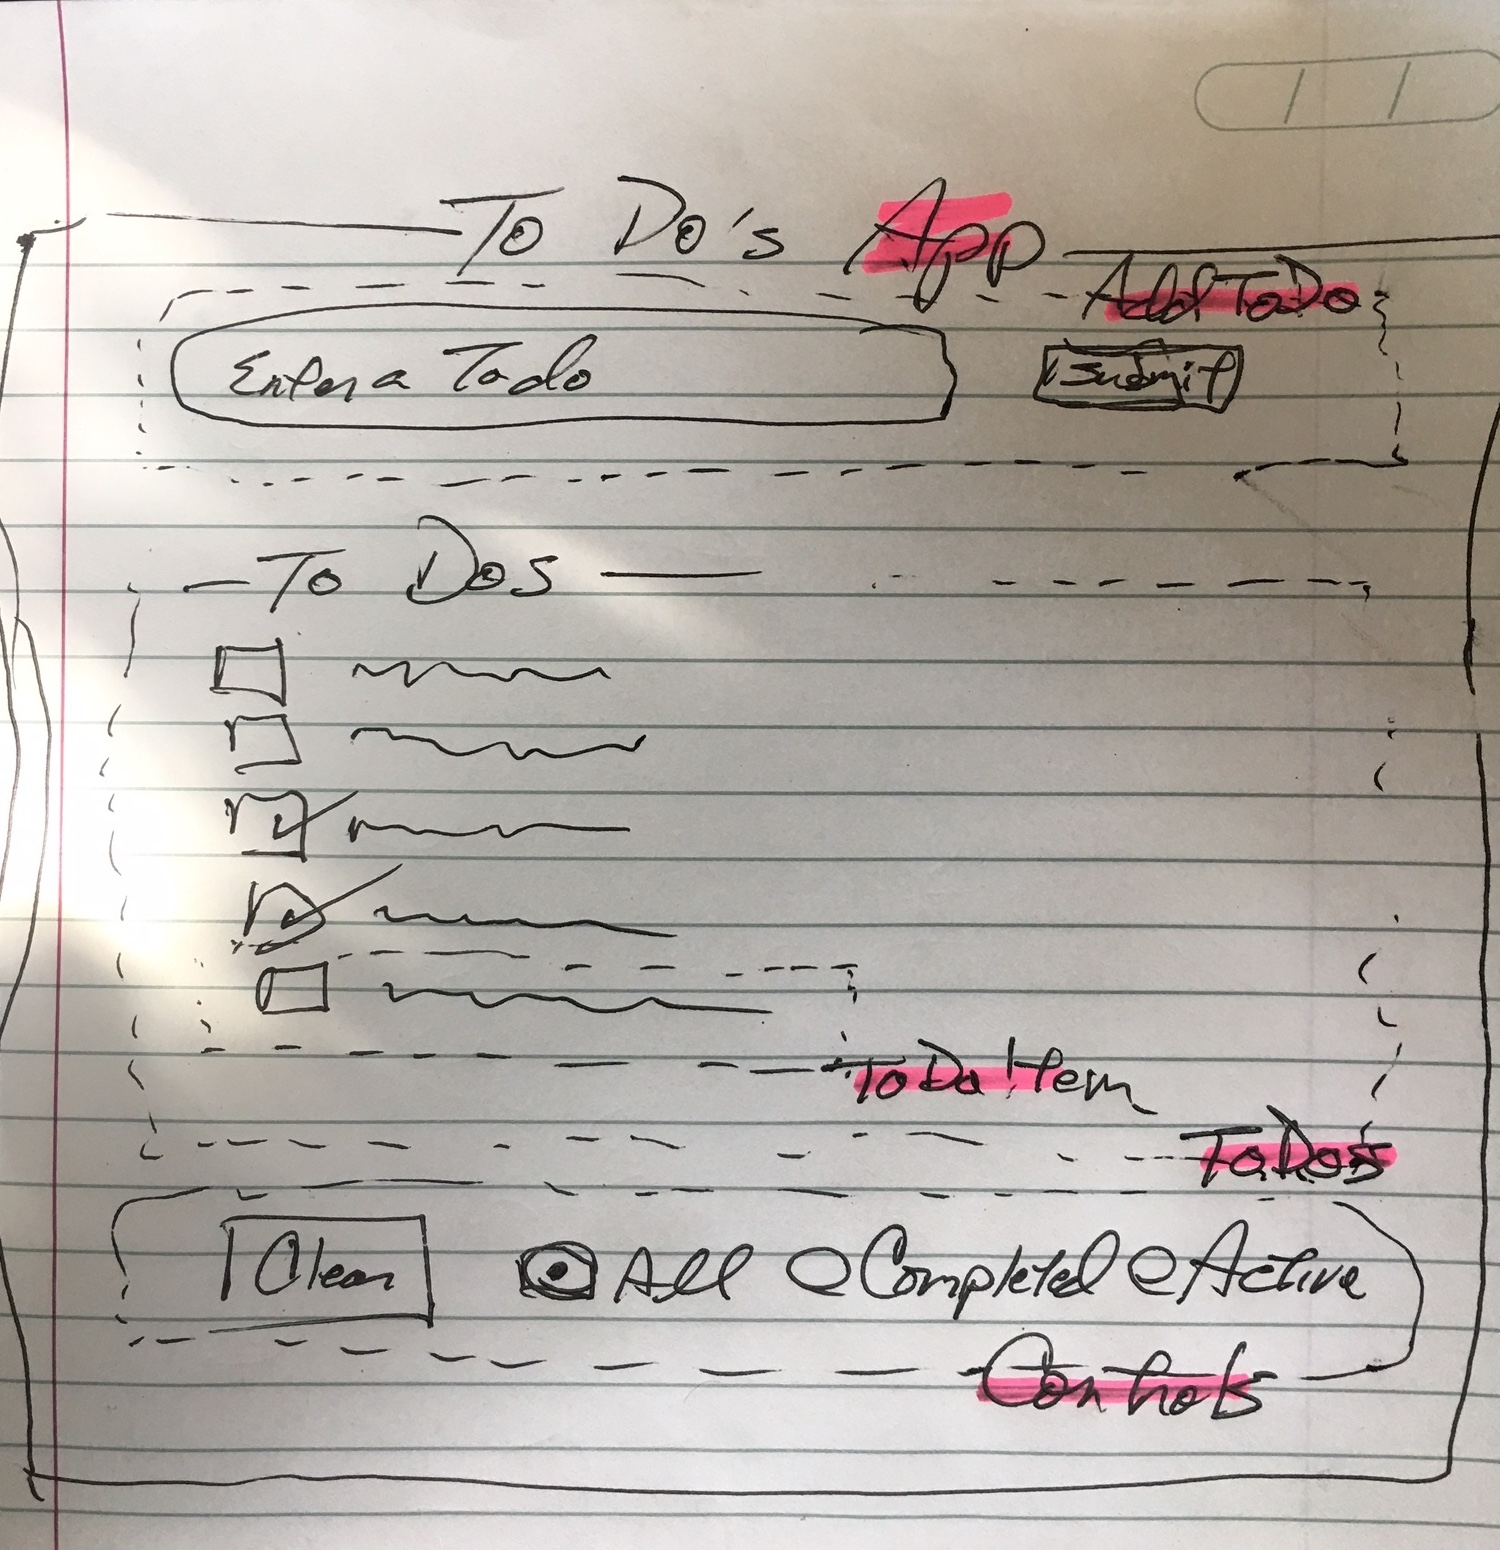 To Do's App
Add ToDo
Enter a Todo
Submit
To Dos
ToDo Item
ToDos
Clear
All Completed Active
Controls